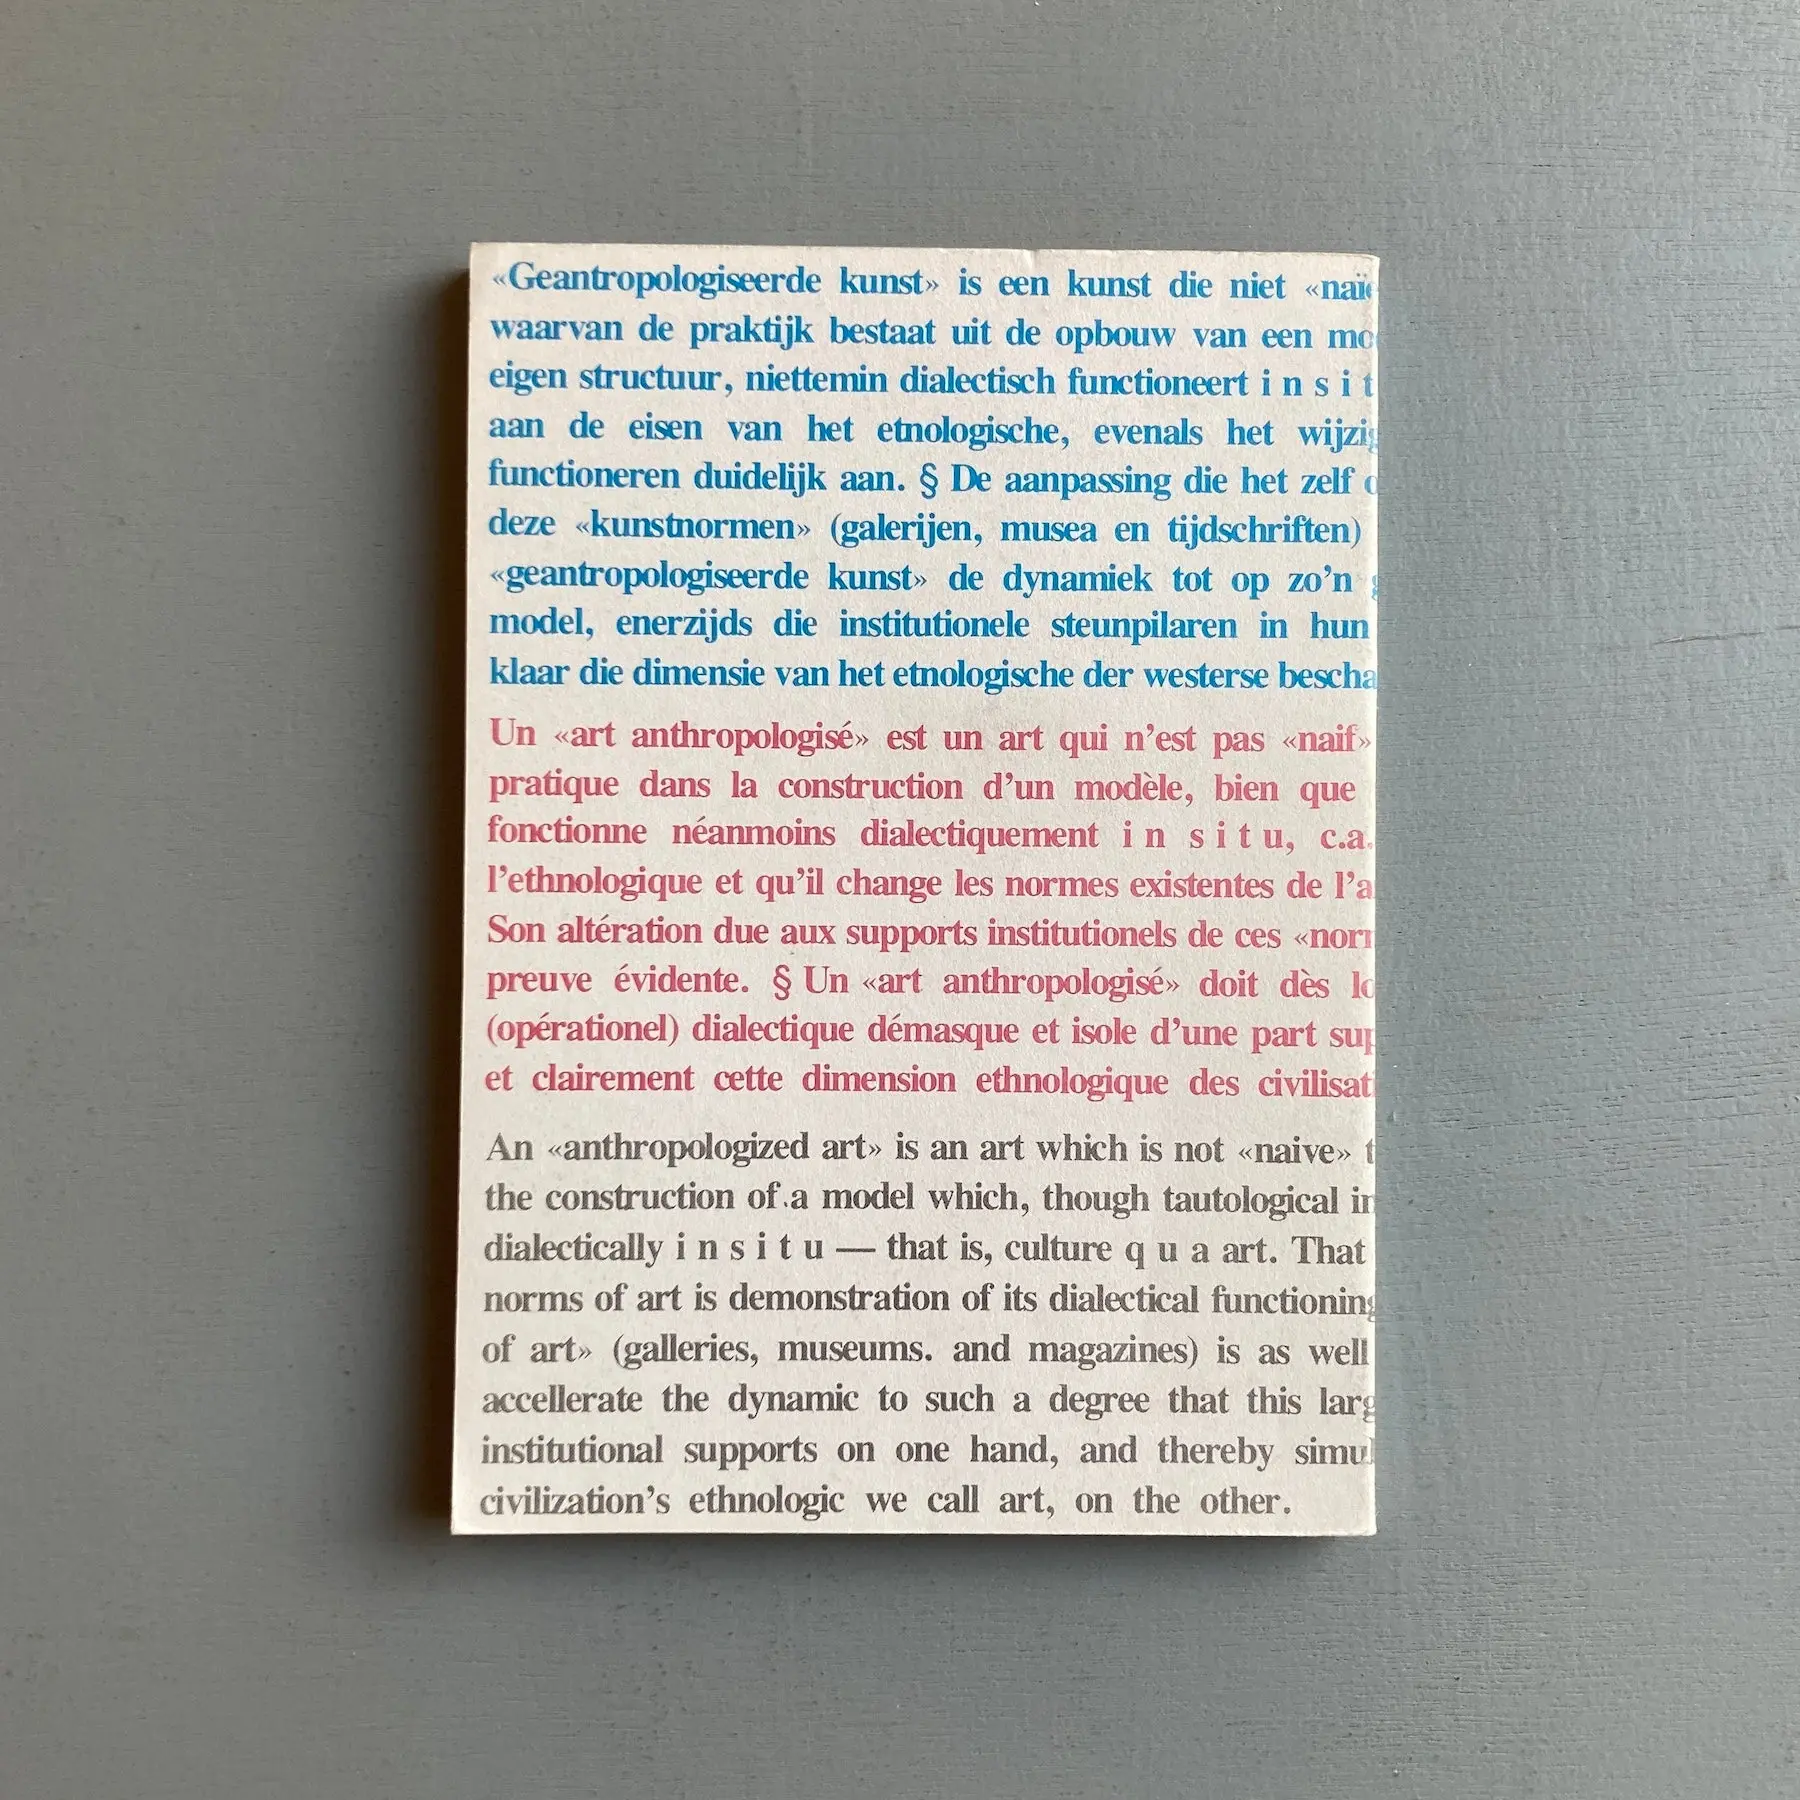 «Geantropologiseerde kunst» is een kunst die niet «naïe
waarvan de praktijk bestaat uit de opbouw van een mo
eigen structuur, niettemin dialectisch functioneert i n s i t
aan de eisen van het etnologische, evenals het wijzig
functioneren duidelijk aan. § De aanpassing die het zelf
deze «kunstnormen» (galerijen, musea en tijdschriften)
«geantropologiseerde kunst» de dynamiek tot op zo'n
model, enerzijds die institutionele steunpilaren in hun
klaar die dimensie van het etnologische der westerse bescha
Un «art anthropologisé» est un art qui n'est pas «naif»
pratique dans la construction d'un modèle, bien que
fonctionne néanmoins dialectiquement i n s i t u, c.a.
l'ethnologique et qu'il change les normes existentes de l'a
Son altération due aux supports institutionels de ces «nor
preuve évidente. § Un «art anthropologisé» doit dès lo
(opérationel) dialectique démasque et isole d'une part sup
et clairement cette dimension ethnologique des civilisati
An «anthropologized art» is an art which is not «naive» t
the construction of.a model which, though tautological in
dialectically i n s i t u — that is, culture q u a art. That
norms of art is demonstration of its dialectical functioning
of art» (galleries, museums. and magazines) is as well
accellerate the dynamic to such a degree that this larg
institutional supports on one hand, and thereby simul
civilization's ethnologic we call art, on the other.